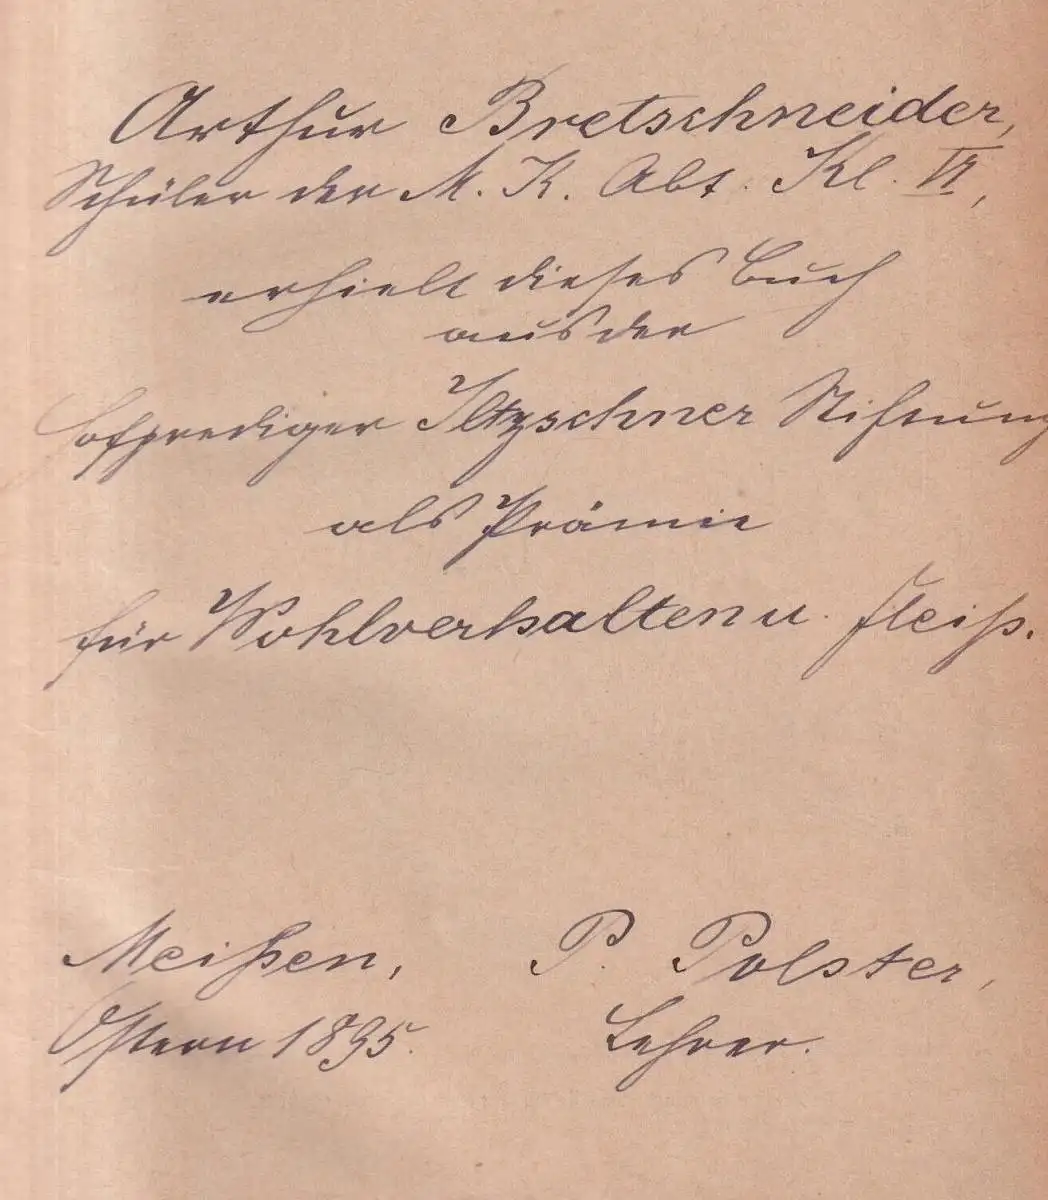 Arthur Bretschneider,
Schüler der M. K. Abt. Kl. VI,
erhielt dieses Buch
aus der
Hofprediger Iltzschner Stiftung
als Prämie
für Wohlverhalten u. Fleiß.
Meißen,
Ostern 1895.
P. Polster,
Lehrer.